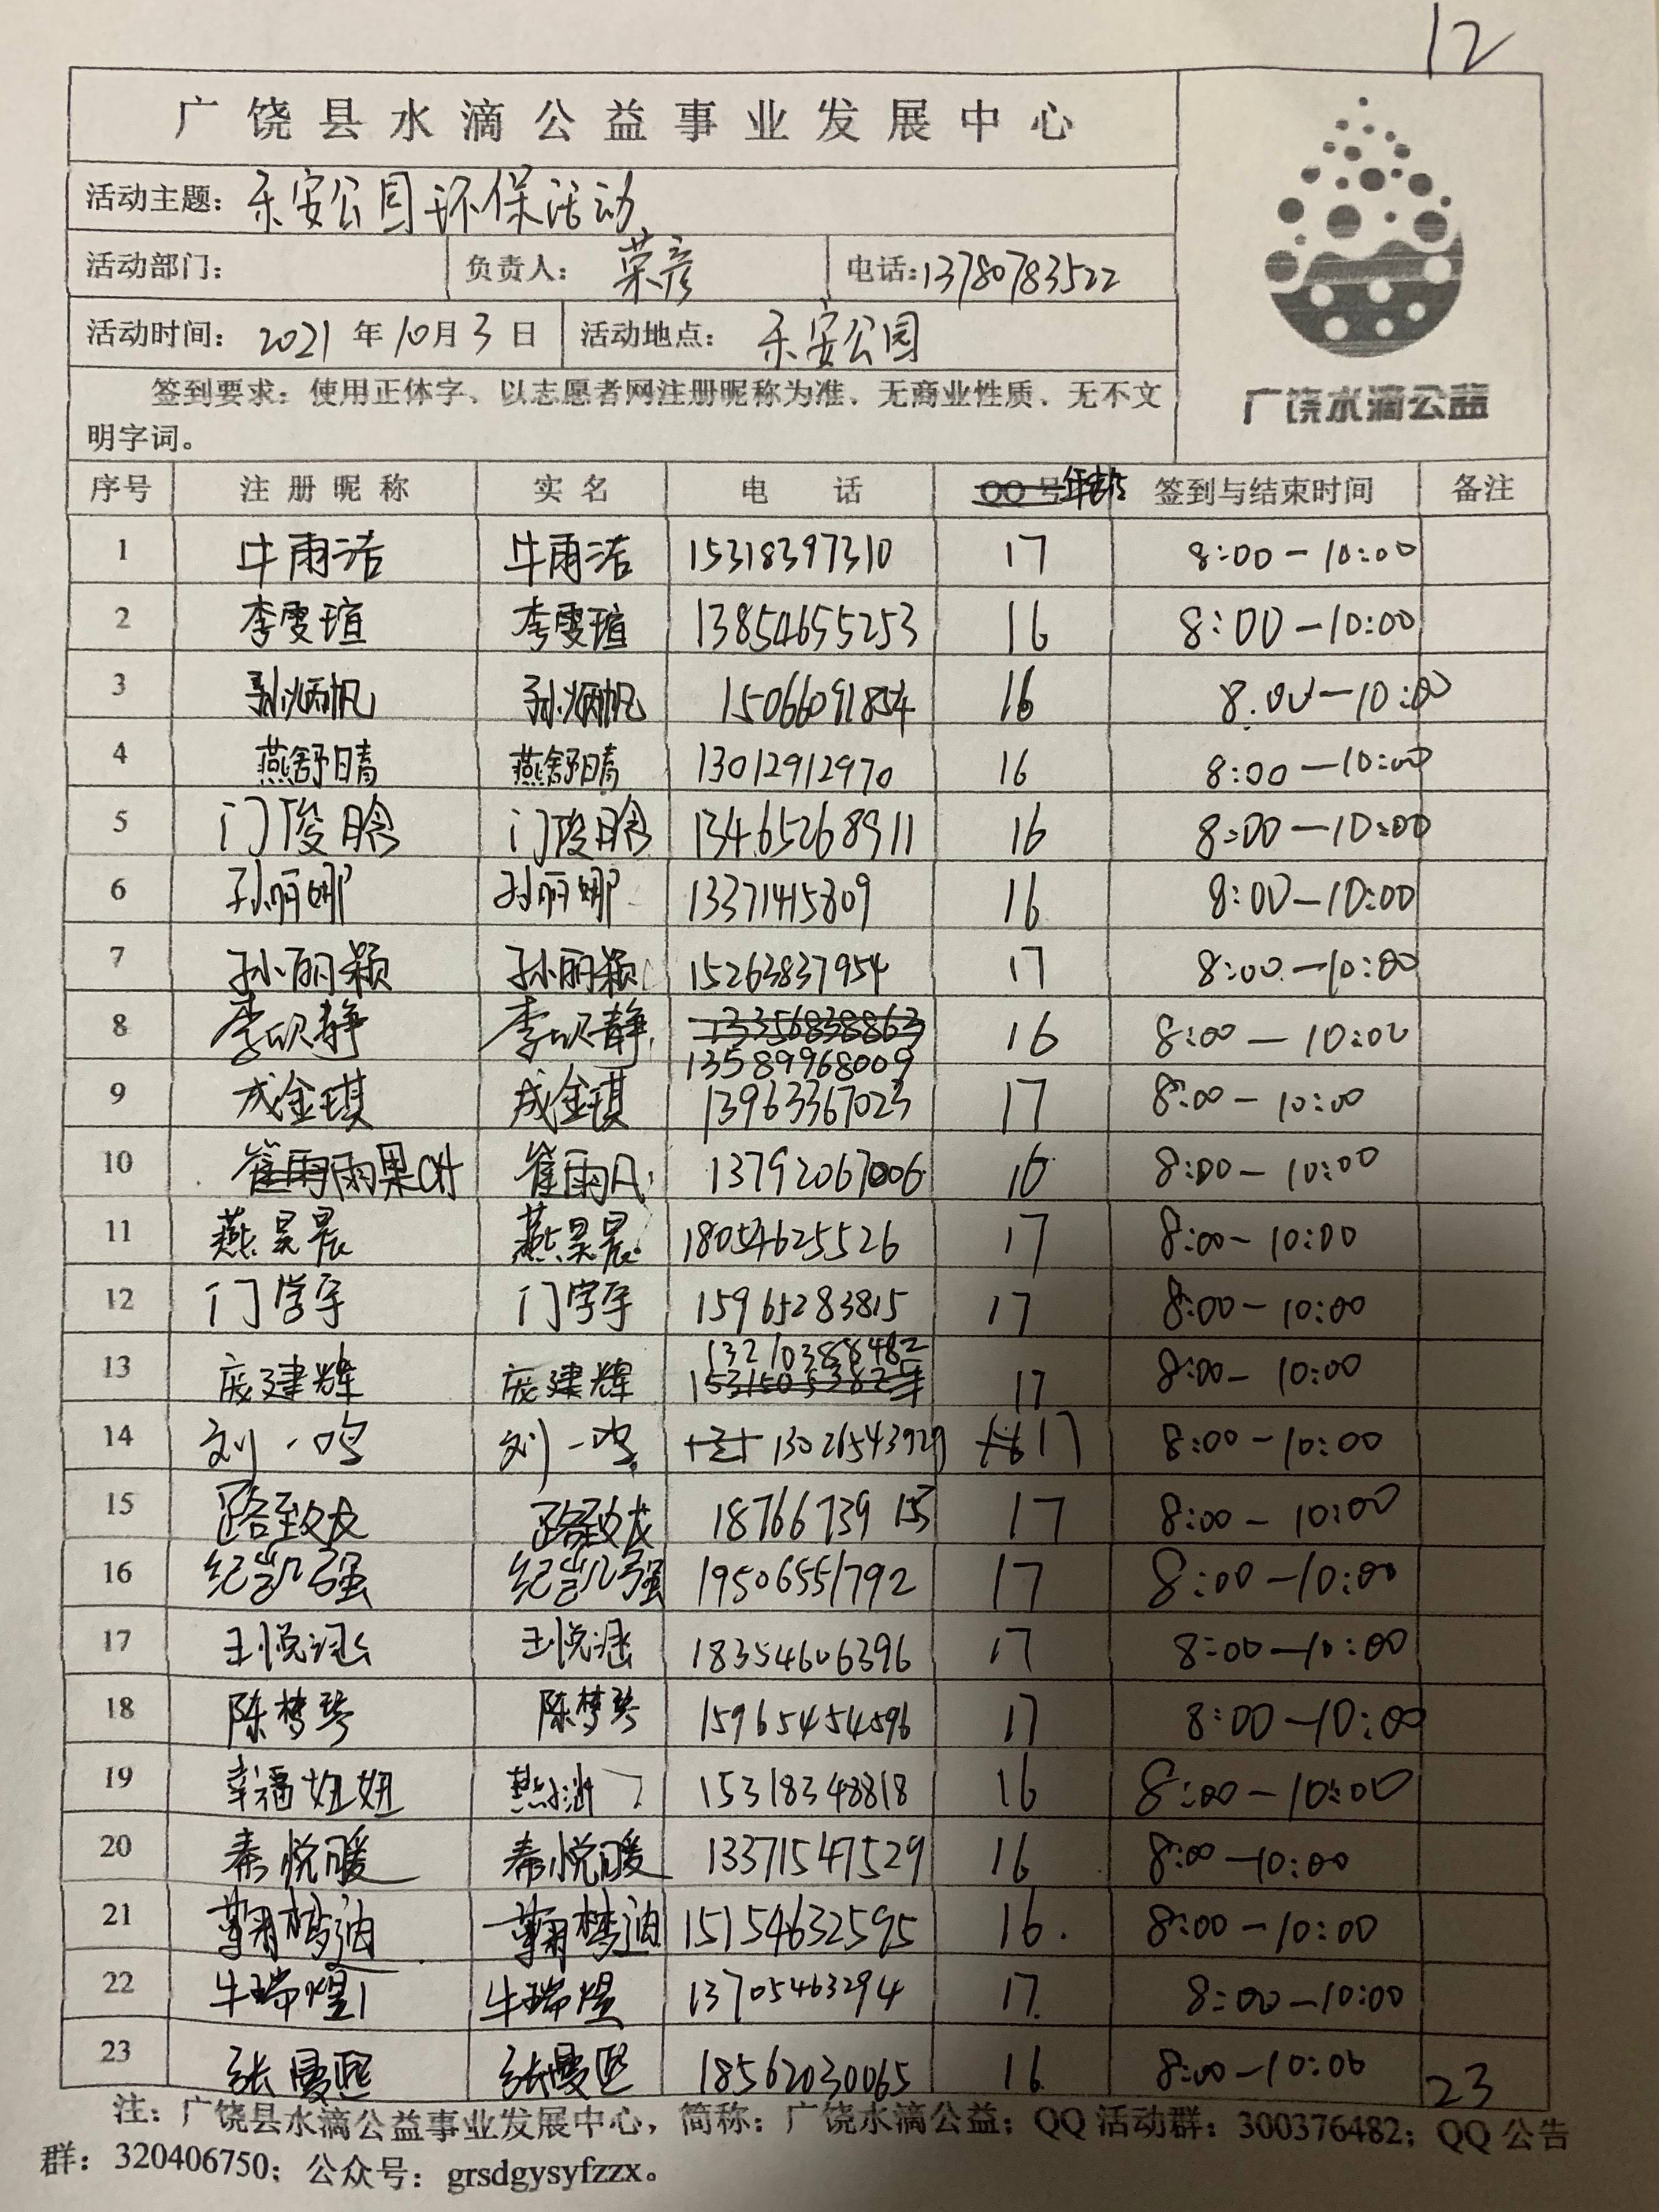 12
广饶县水滴公益事业发展中心
活动主题：乐安公园环保活动
活动部门： 负责人：荣彦 电话：13780783522
活动时间：2021年10月3日 活动地点：乐安公园
广饶水滴公益
签到要求：使用正体字、以志愿者网注册昵称为准、无商业性质、无不文
明字词。
序号 注册昵称 实名 电话 QQ号 年龄 签到与结束时间 备注
1 牛雨洁 牛雨洁 15318397310 17 8:00-10:00
2 李雯瑄 李雯瑄 13854655253 16 8:00-10:00
3 孙炳帆 孙炳帆 15066091854 16 8:00-10:00
4 燕舒晴 燕舒晴 13012912970 16 8:00-10:00
5 门俊晗 门俊晗 13465268911 16 8:00-10:00
6 孙丽娜 孙丽娜 13371415809 16 8:00-10:00
7 孙丽颖 孙丽颖 15263837954 17 8:00-10:00
8 李欣静 李欣静 13356838863 16 8:00-10:00
13589968009
9 成金琪 成金琪 13963367023 17 8:00-10:00
10 雨果 崔雨凡 13792067006 16 8:00-10:00
11 燕昊晨 燕昊晨 18054625526 17 8:00-10:00
12 门学宇 门学宇 15965283815 17 8:00-10:00
13210388482
13 庞建辉 庞建辉 17 8:00-10:00
14 刘一鸣 刘一鸣 13026543929 17 8:00-10:00
15 路致龙 路致龙 18766739155 17 8:00-10:00
16 纪凯强 纪凯强 19506551792 17 8:00-10:00
17 王悦涵 王悦涵 18354606396 17 8:00-10:00
18 陈梦琴 陈梦琴 15965454596 17 8:00-10:00
19 幸福妞妞 15318348818 16 8:00-10:00
20 秦悦暖 秦悦暖 13371547529 16 8:00-10:00
21 鞠梦迪 鞠梦迪 15154632595 16. 8:00-10:00
22 牛瑞煜1 牛瑞煜 13705463294 17. 8:00-10:00
23 张曼熙 张曼熙 18562030065 16 8:00-10:00
23
注：广饶县水滴公益事业发展中心，简称：广饶水滴公益；QQ活动群：300376482；QQ公告
群：320406750；公众号：grsdgysyfzzx。